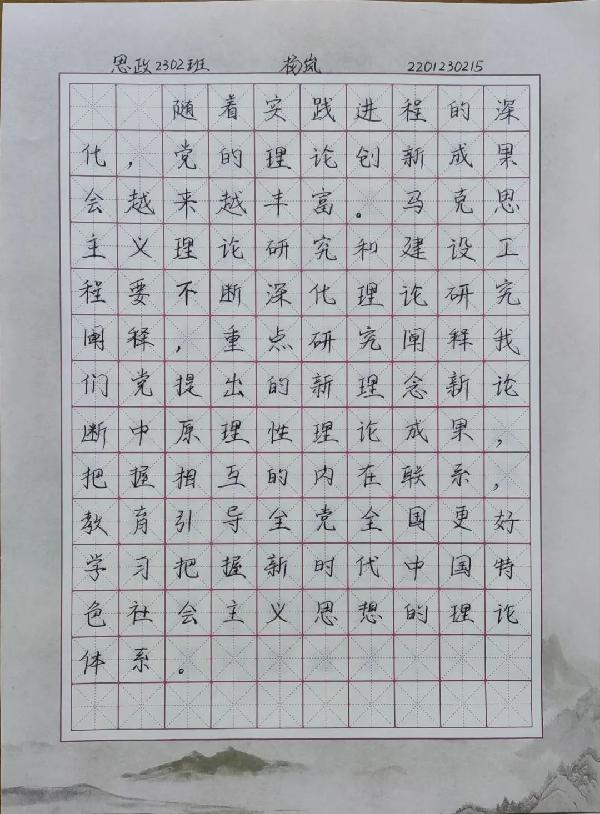 思政2302班 杨岚 2201230215
随着实践进程的深
化，党的理论创新成果
会越来越丰富。马克思
主义理论研究和建设工
程要不断深化理论研究
阐释，重点研究阐释我
们党提出的新理念新论
断中原理性理论成果，
把握相互的内在联系，
教育引导全党全国更好
学习把握新时代中国特
色社会主义思想的理论
体系。